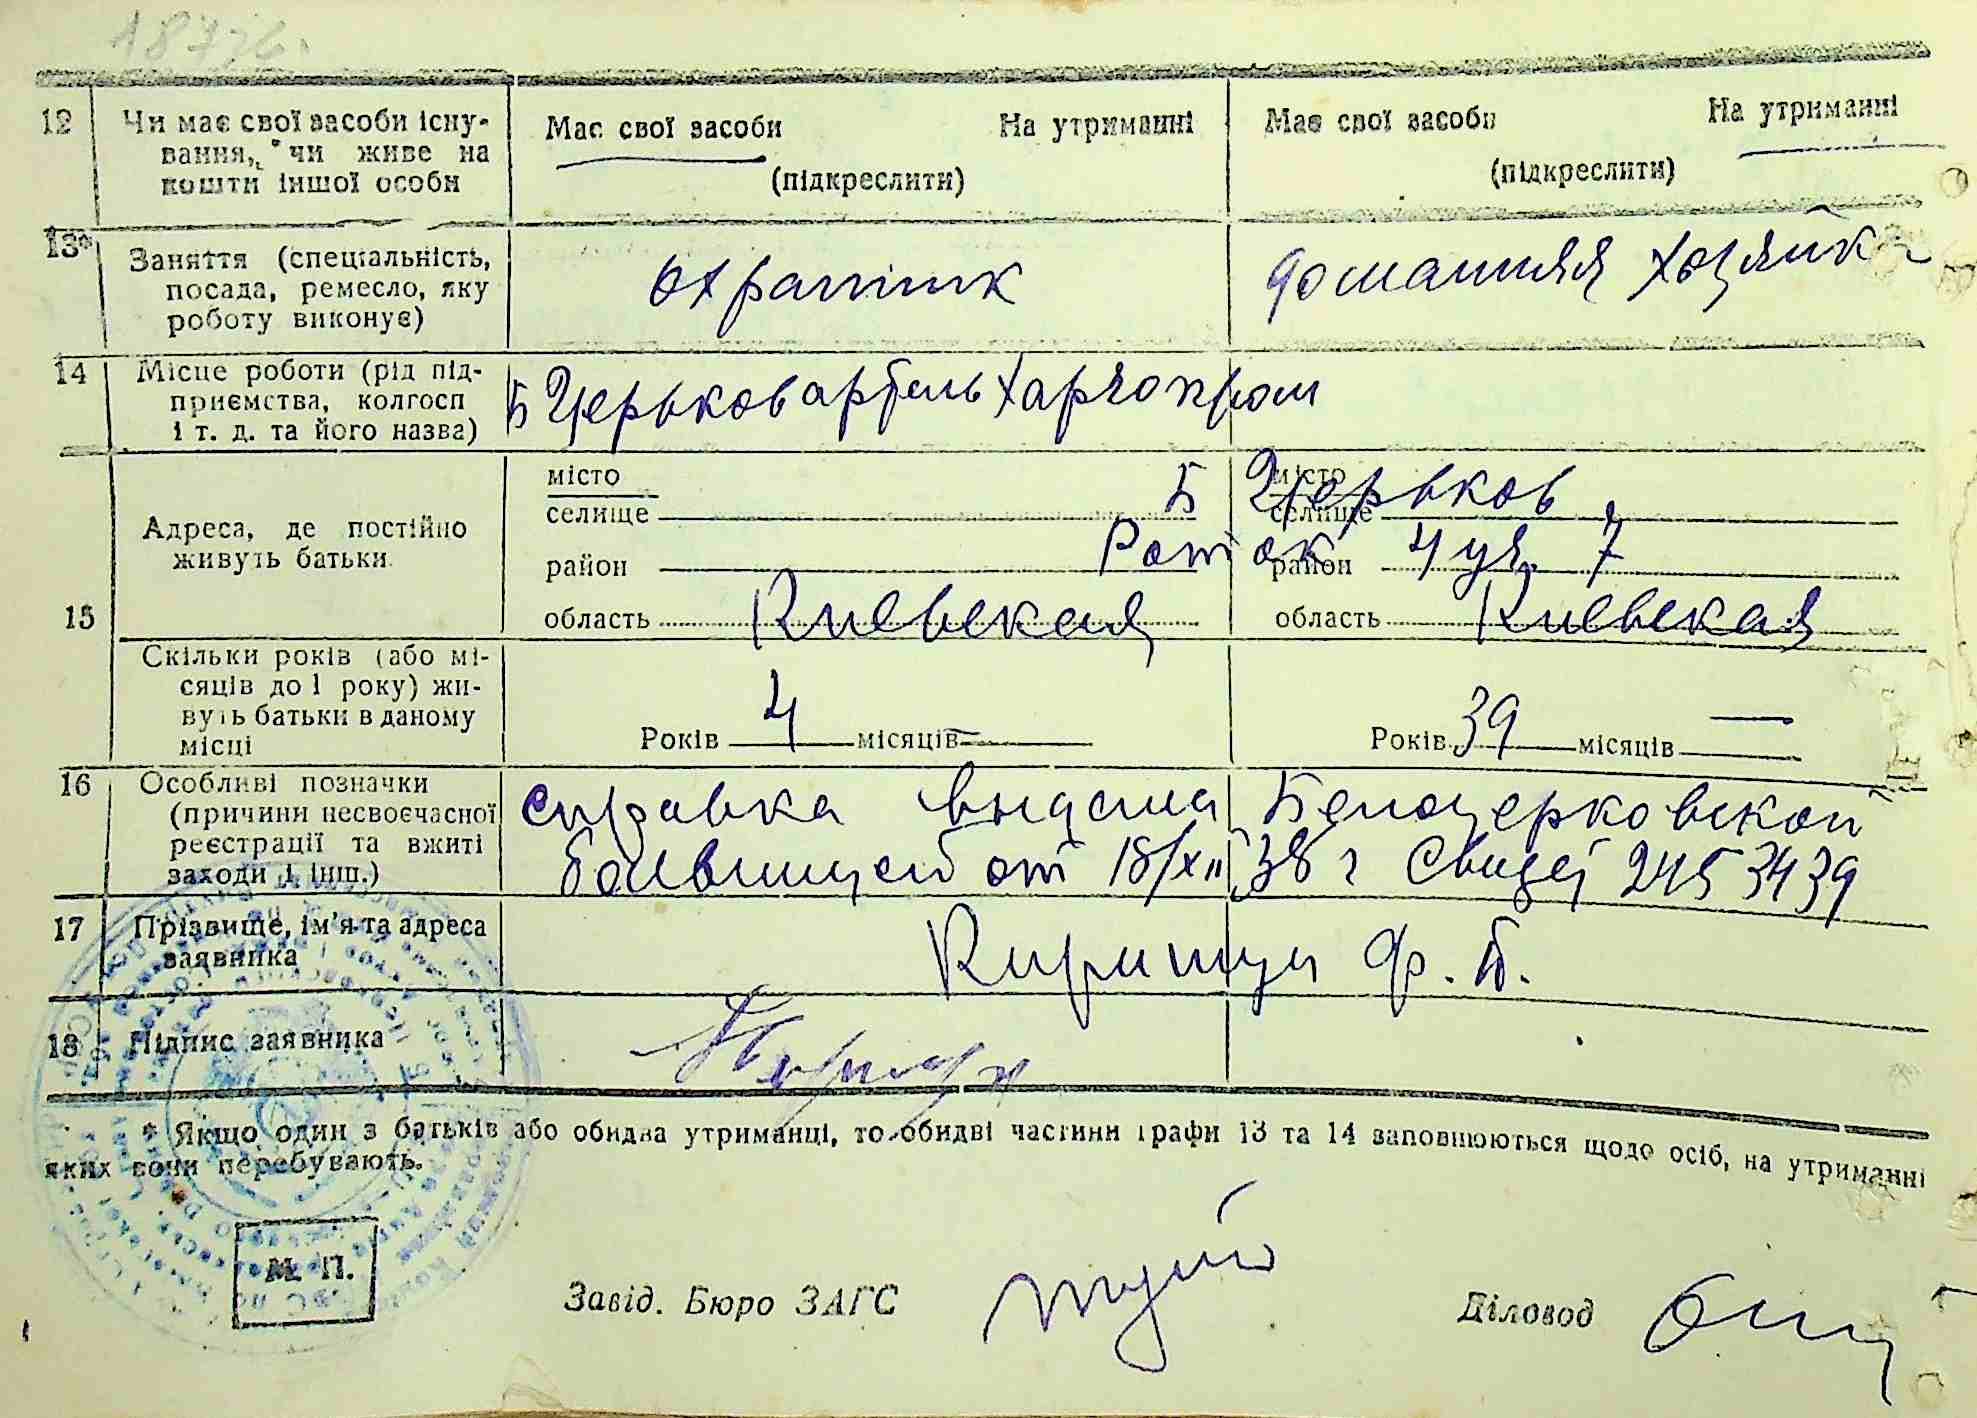 12 Чи має свої засоби існу-
вання, чи живе на
кошти іншої особи
Має свої засоби На утриманні
(підкреслити)
Має свої засоби На утриманні
(підкреслити)
13* Заняття (спеціальність,
посада, ремесло, яку
роботу виконує)
охраник
домашняя хозяйка
14 Місце роботи (рід під-
приємства, колгосп
і т. д. та його назва)
Б Церьков артель Харчопром
15 Адреса, де постійно
живуть батьки
місто
селище
район
область Киевская
місто
селище
Б Церьков
район
Роток 4 уч. 7
область Киевская
Скільки років (або мі-
сяців до 1 року) жи-
вуть батьки в даному
місці
Років 4 місяців —
Років 39 місяців —
16 Особливі позначки
(причини несвоєчасної
реєстрації та вжиті
заходи і інш.)
справка выдана Белоцерковской
больницей от 18/XII 38 г Свидет 2453439
17 Прізвище, ім'я та адреса
заявника
Ф. Б.
18 Підпис заявника
* Якщо один з батьків або обидва утриманці, то обидві частини графи 13 та 14 заповнюються щодо осіб, на утриманні
яких вони перебувають.
М. П.
Завід. Бюро ЗАГС
Діловод